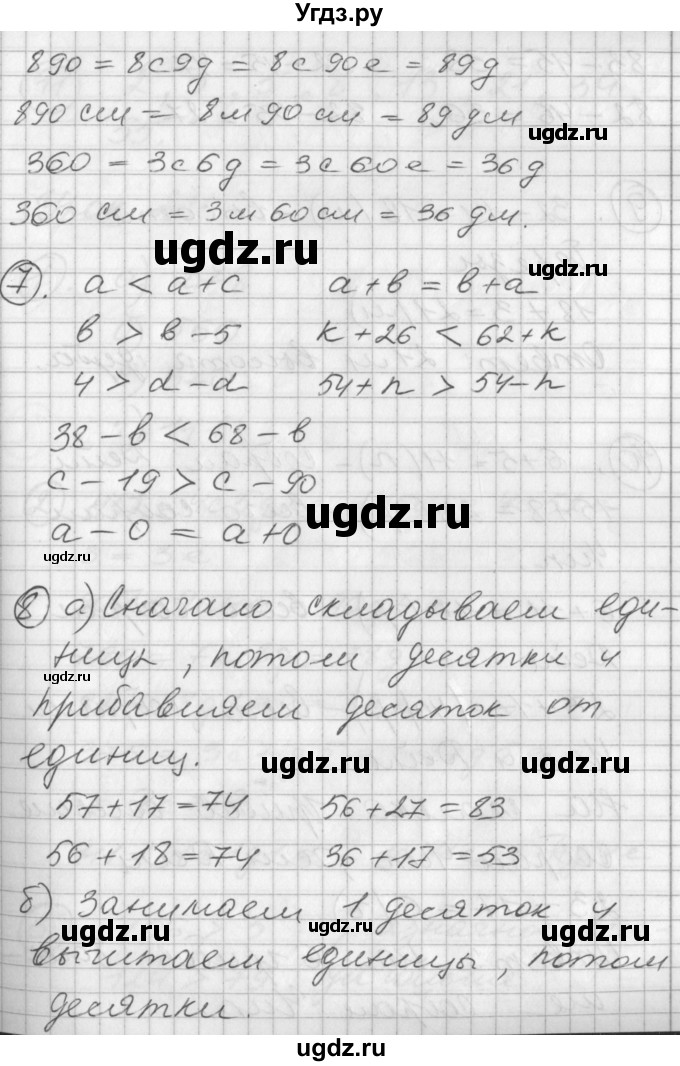 Угдз.ру
890 = 8с9д = 8с 90е = 89д
890 см = 8м 90 см = 89 дм
ugdz.ru
360 = 3с 6д = 3с 60е = 36д
ugdz.ru
360 см = 3м 60 см = 36 дм.
ugdz.ru
ugdz.ru
7. a < a+c a+в = в+a
в > в-5 к+26 < 62+к
4 > d-d 54+n > 54-n
38-в < 68-в
с-19 > с-90
ugdz.ru
a-0 = a+0
ugdz.ru ugdz.ru
8 а) Сначало складываем еди-
ницы, потом десятки и
ugdz.ru
прибавляем десяток от
единиц.
ugdz.ru ugdz.ru
57+17=74 56+27=83
56+18=74 36+17=53
б) Занимаем 1 десяток и
ugdz.ru ugdz.ru ugdz.ru
вычитаем единицы, потом
десятки.
ugdz.ru
ugdz.ru